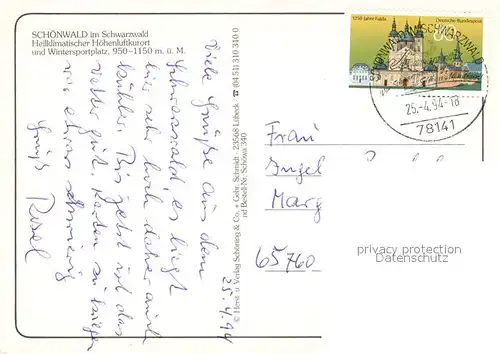 SCHÖNWALD im Schwarzwald
Heilklimatischer Höhenluftkurort
und Wintersportplatz, 950–1150 m. ü. M.
25.4.94
Viele Grüße aus dem
Schwarzwald, es liegt
hier sehr hoch daher auch
kühler. Bis jetzt ist das
Wetter gut. Karten zu kriegen
war etwas schwierig
Gruß
Rosel
© Herst. u. Verlag Schöning & Co. + Gebr. Schmidt · 23568 Lübeck · ☎ (0451) 310 310 0
nd Bestell-Nr. Schöwa 340
1250 Jahre Fulda
Deutsche Bundespost
80
SCHÖNWALD IM SCHWARZWALD
25.-4.94-18
78141
Frau
Ingel
Marg
65760
privacy protection
Datenschutz